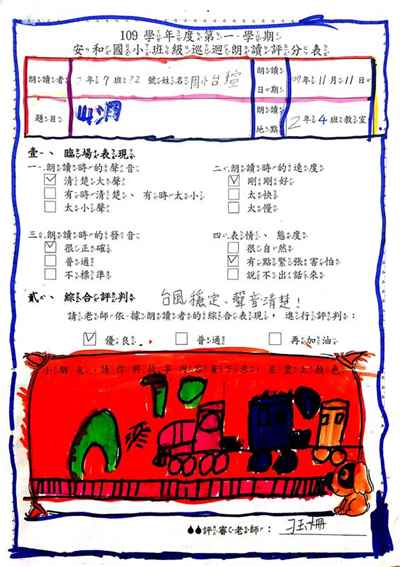 109學年度第一學期
安和國小班級巡迴朗讀評分表
朗讀者 年7班 號姓名 周 朗讀日期 109年11月11日
題目 山洞 朗讀地點 2年4班教室
壹、臨場表現
一、朗讀時的聲音
清楚大聲
有時清楚、有時太小
太小聲
二、朗讀時的速度
剛剛好
太快
太慢
三、朗讀時的發音
很正確
普通
不標準
四、表情、態度
很自然
有點緊張害怕
說不出話來
貳、綜合評判 台風穩定、聲音清楚!
請老師依據朗讀者的綜合表現,進行評判:
優良 普通 再加油
小朋友,請你將故事內容畫下來,並塗上顏色
評審老師: